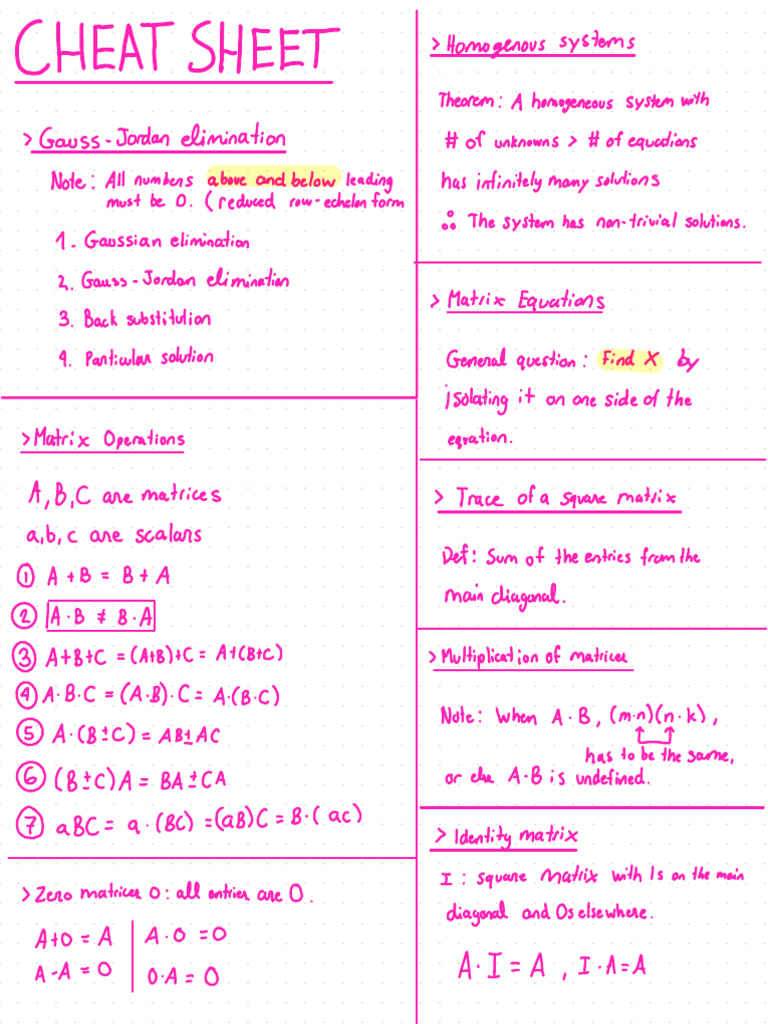 CHEAT SHEET
> Gauss-Jordan elimination
Note: All numbers above and below leading
must be 0. (reduced row-echelon form
1. Gaussian elimination
2. Gauss-Jordan elimination
3. Back substitution
4. Particular solution
> Matrix Operations
A, B, C are matrices
a, b, c are scalars
① A + B = B + A
② A · B ≠ B · A
③ A+B+C = (A+B)+C = A+(B+C)
④ A·B·C = (A·B)·C = A·(B·C)
⑤ A·(B±C) = AB±AC
⑥ (B±C)A = BA±CA
⑦ aBC = a·(BC) = (aB)C = B·(aC)
> Zero matrices 0: all entries are 0.
A+0 = A
A-A = 0
A·0 = 0
0·A = 0
> Homogenous systems
Theorem: A homogeneous system with
# of unknowns > # of equations
has infinitely many solutions
∴ The system has non-trivial solutions.
> Matrix Equations
General question: Find X by
isolating it on one side of the
equation.
> Trace of a square matrix
Def: Sum of the entries from the
main diagonal.
> Multiplication of matrices
Note: When A·B, (m·n)(n·k),
has to be the same,
or else A·B is undefined.
> Identity matrix
I: square matrix with 1s on the main
diagonal and 0s elsewhere.
A·I = A, I·A=A